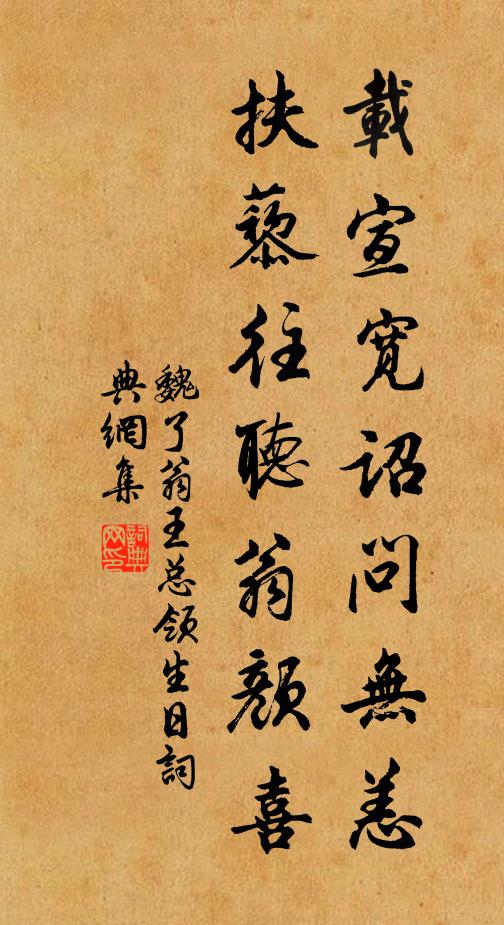 載宣寬詔問無恙
扶藜往聽翁顏喜
魏了翁王總領生日詞
典網集
詞典网印